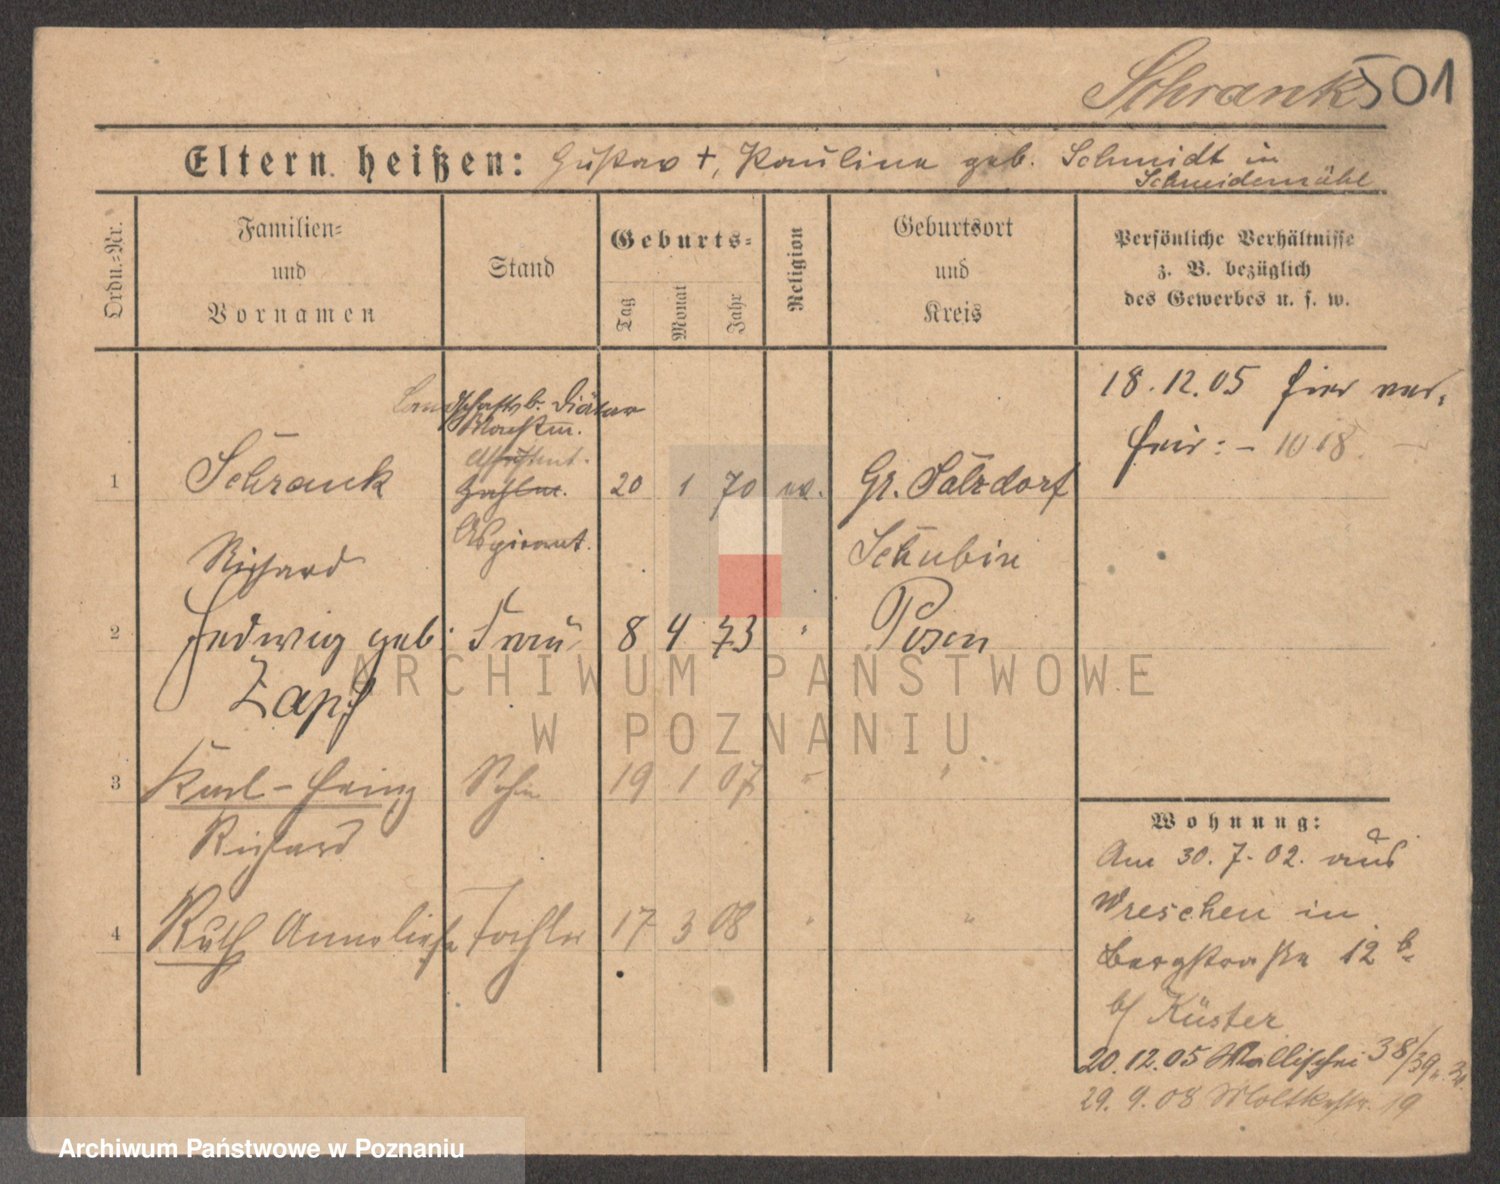 Schrank 501
Eltern heißen: Gustav +, Paulina geb. Schmidt in
Schneidemühl
Ordn.-Nr.
Familien-
und
Vornamen
Stand
Geburts-
Tag
Monat
Jahr
Religion
Geburtsort
und
Kreis
Persönliche Verhältnisse
z. B. bezüglich
des Gewerbes u. s. w.
18.12.05 hier ver-
heir: - 1018
Landschaftsb. Diätar
Assistent.
1 Schranck Zahlm. 20 1 70 ev. Gr. Salzdorf
Aspirant.
Richard Schubin
2 Hedwig geb. Frau 8 4 73 " Posen
Zapf
3 Karl-Heinz Sohn 19 1 07 " "
Richard
4 Ruth Anneliese Tochter 17 3 08 " "
Wohnung:
Am 30.7.02. aus
Wreschen in
Bergstraße 12 b.
b/ Küster
20.12.05 Wallischei 38/39
29.9.08 Moltkestr. 19
ARCHIWUM PAŃSTWOWE
W POZNANIU
Archiwum Państwowe w Poznaniu